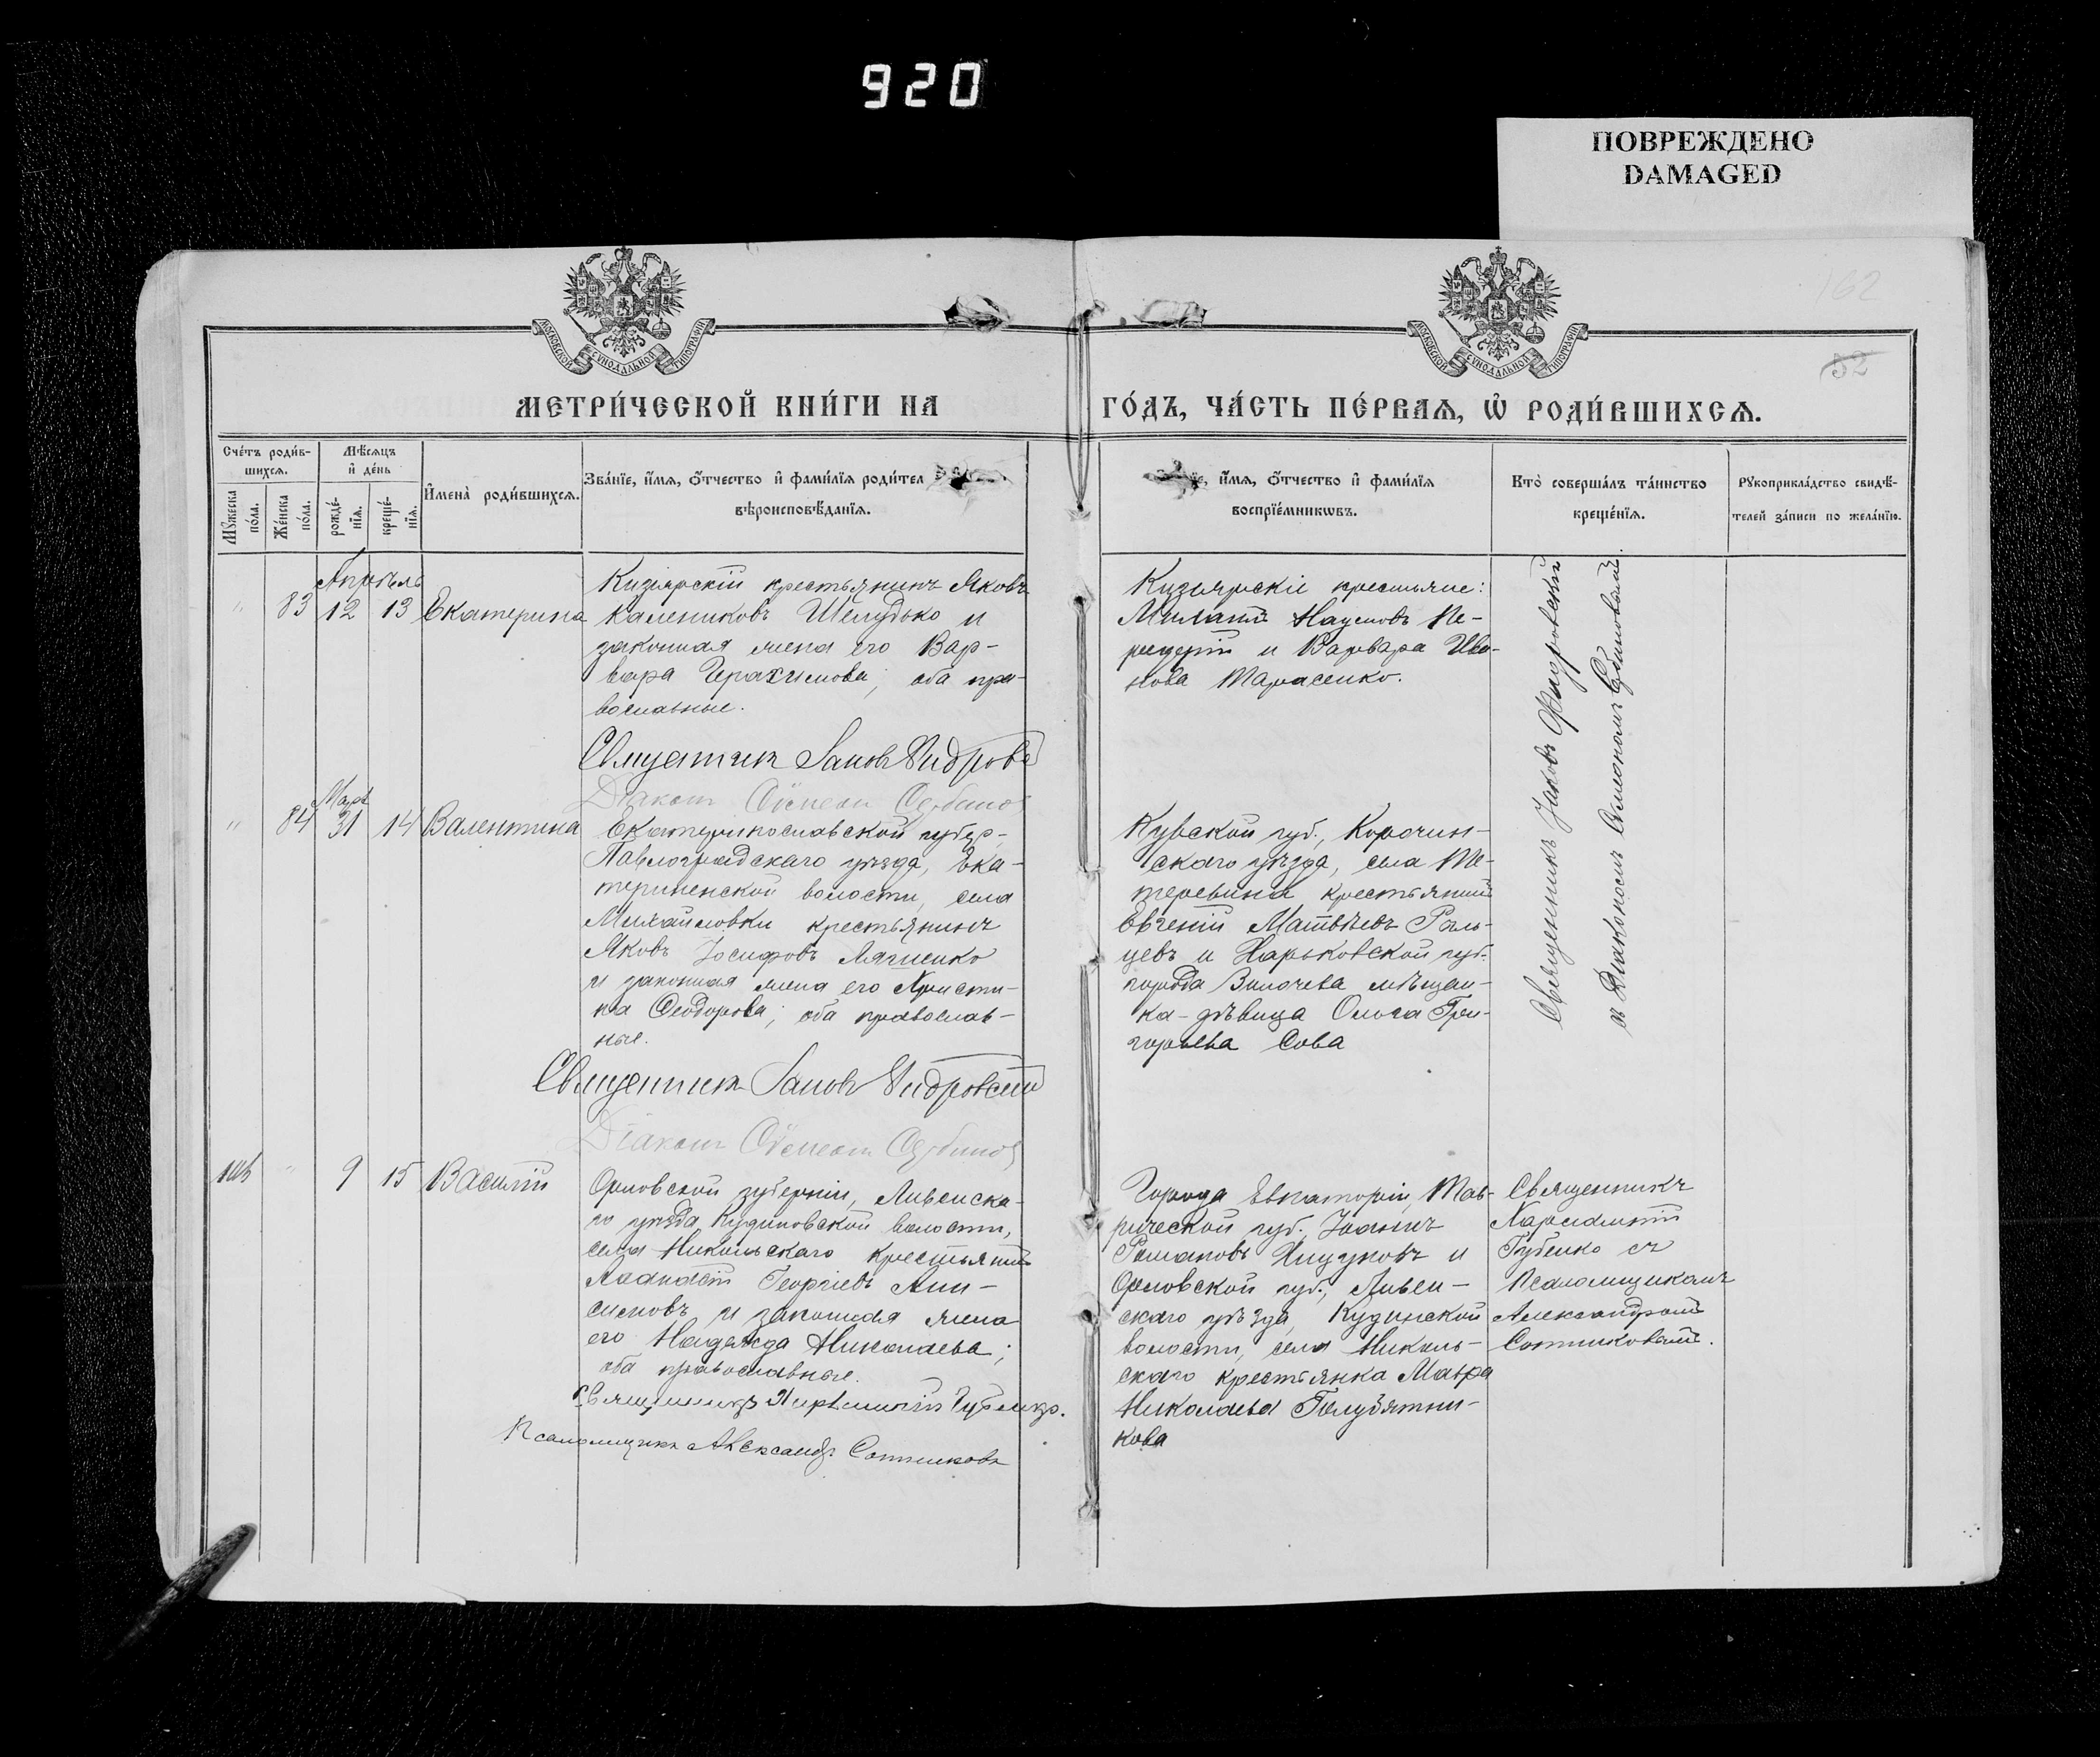 920
ПОВРЕЖДЕНО
DAMAGED
162
52
МОСКОВСКОЙ СѴНОДАЛЬНОЙ ТИПОГРАФІИ
МОСКОВСКОЙ СѴНОДАЛЬНОЙ ТИПОГРАФІИ
МЕТРИ́ЧЕСКОЙ КНИ́ГИ НА ГО́ДЪ, ЧА́СТЬ ПЕ́РВАѦ, Ѽ РОДИ́ВШИХСѦ.
Сче́тъ роди́в-
шихсѧ.
Мꙋжеска
по́ла.
Же́нска
по́ла.
Мѣ́сѧцъ
и҆ де́нь
рожде́-
нїѧ.
креще́-
нїѧ.
И҆мена̀ роди́вшихсѧ.
Зва́нїе, и҆́мѧ, ѻ҆́тчество и҆ фами́лїѧ роди́тел
вѣроисповѣ́данїѧ.
е, и҆́мѧ, ѻ҆́тчество и҆ фами́лїѧ
воспрїе́мникѡвъ.
Кто̀ соверша́лъ та́инство
креще́нїѧ.
Рꙋкоприкла́дство свидѣ́-
телей за́писи по жела́нїю.
Апрѣль
" 83 12 13 Екатерина
Кизіярскій крестьянинъ Яковъ
Калениковъ Шелудько и
законная жена его Вар-
вара Герасимова; оба пра-
вославные.
Священник Іаков
Діакон
Кизіярскіе крестьяне:
Наумовъ Пе-
и Варвара Ива-
нова Тарасенко.
Священникъ Іаковъ
съ Діакономъ
Март
" 84 31 14 Валентина
Екатеринославской губер.,
Павлоградскаго уѣзда, Ека-
териненской волости, села
Михайловки крестьянинъ
Яковъ Іосифовъ Лягненко
и законная жена его Христи-
на Ѳеодорова; оба православ-
ные.
Священник Іаков
Діакон
Курской губ., Корочин-
скаго уѣзда, села Те-
теревина крестьянинъ
Евгеній Матвѣевъ Раль-
цевъ и Харьковской губ.
города Золочева мѣщан-
ка-дѣвица Ольга Гри-
горьева Сова
" 9 15 Василій
Орловской губерніи, Ливенска-
го уѣзда, Кудиновской волости,
села Никольскаго крестьянинъ
Георгіевъ Ани-
симовъ и законная жена
его Надежда Николаева;
оба православные.
Священникъ Харлампій Губенко.
Псаломщикъ Александръ Сотниковъ
Города Евпаторіи, Тав-
рической губ. Іоаннъ
Романовъ и
Орловской губ., Ливен-
скаго уѣзда, Кудинской
волости, села Николь-
скаго крестьянка Мавра
Николаева Голубятни-
кова
Священникъ
Харлампій
Губенко съ
псаломщикомъ
Александромъ
Сотниковымъ.